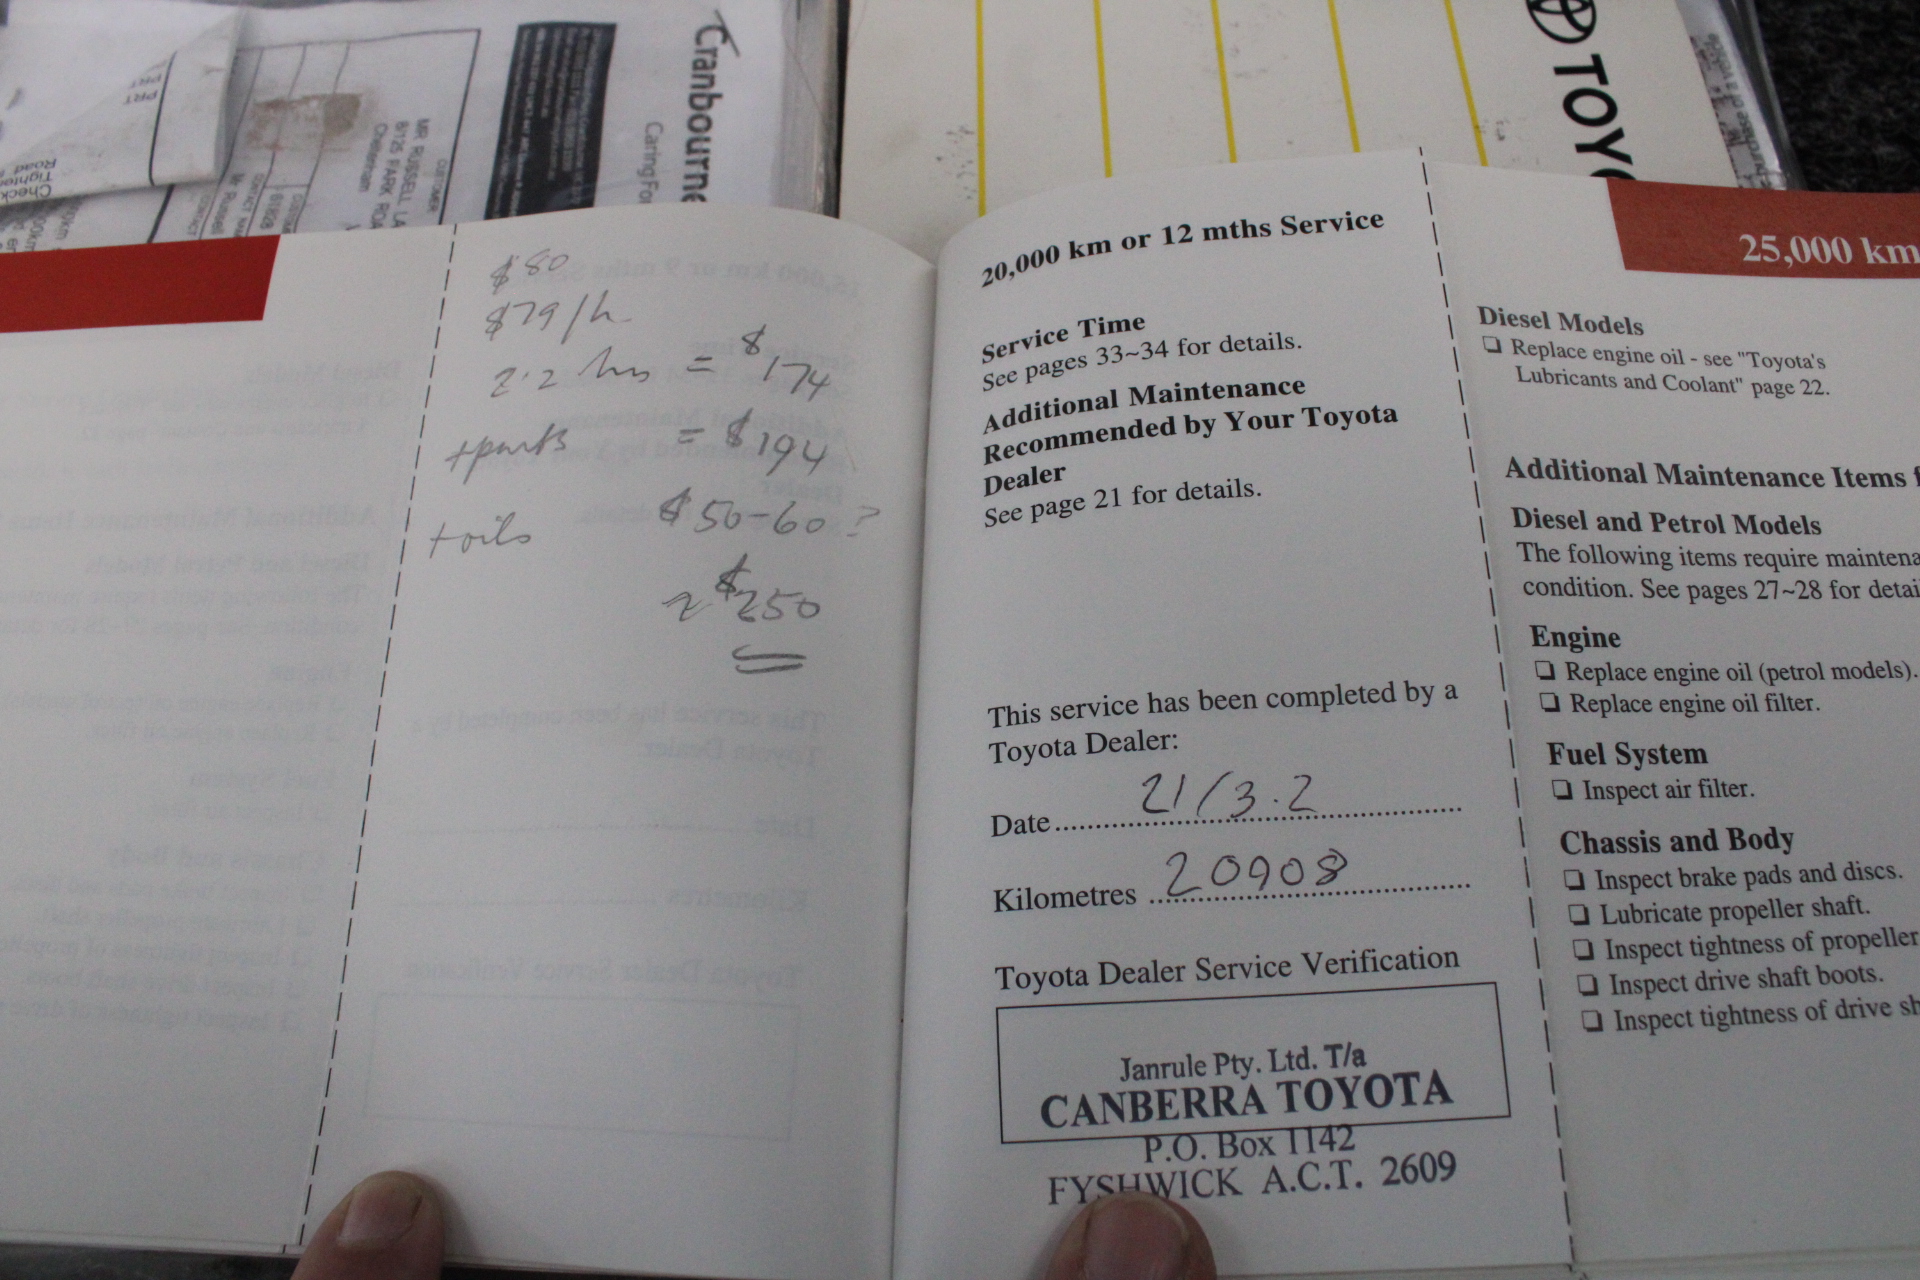 Cranbourne
Caring Fo
CUSTOMER
MR RUSSELL LA
6/125 PARK ROA
Cheltenham
Mr Russell
PRT
PRT
TOYO
$80
$79/h.
2.2 hrs = $174
+parts = $194
+oils $50-60?
≈ $250
20,000 km or 12 mths Service
Service Time
See pages 33~34 for details.
Additional Maintenance
Recommended by Your Toyota
Dealer
See page 21 for details.
This service has been completed by a
Toyota Dealer:
Date 21/3.2
Kilometres 20908
Toyota Dealer Service Verification
Janrule Pty. Ltd. T/a
CANBERRA TOYOTA
P.O. Box 1142
FYSHWICK A.C.T. 2609
25,000 km
Diesel Models
❏ Replace engine oil - see "Toyota's
Lubricants and Coolant" page 22.
Additional Maintenance Items f
Diesel and Petrol Models
The following items require maintena
condition. See pages 27~28 for detai
Engine
❏ Replace engine oil (petrol models).
❏ Replace engine oil filter.
Fuel System
❏ Inspect air filter.
Chassis and Body
❏ Inspect brake pads and discs.
❏ Lubricate propeller shaft.
❏ Inspect tightness of propeller
❏ Inspect drive shaft boots.
❏ Inspect tightness of drive sh